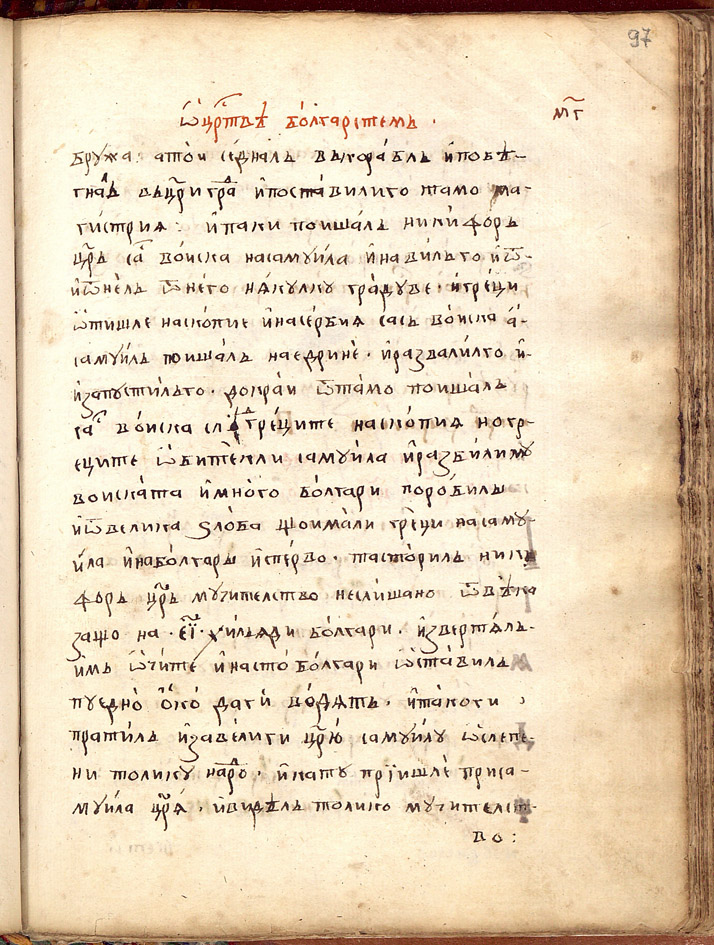 97
ѿ црⷭ҇твѣ болгарстемъ · м҃г
бружа · а той седналъ въ корабль и побѣ-
гналъ въ цри граⷣ и поставили го тамо ма-
гистрия : и паки пошалъ никифоръ
цръ саⷭ воиска на самуила и навилъ го и ѿ-
и ѿнелъ ѿ него няколку градуве · и греци
ѿтишле на скопие и на сербия сасъ воиска а-
самуилъ пошалъ на едрине · и развалилго и-
изапустилъ го · до край ѿ тамо пошалъ
саⷭ воиска слѣⷣ греците на скопия но гр-
еците ѡбителкли самуила и разбили му
воиската и много болгари поробили
и ѿ велика злоба що имали греци на саму-
ила и на болгары и сперво · та сторилъ ники
форъ цръ мучителство неслишано ѿ вѣка
защо на · е҃і · хиляди болгари · извертял-
имъ ѡчите и на сто болгари ѡставилъ
пуедно ѻко да ги водятъ · и така ги
пратилъ и заведи ги црю самуилу ѡслепе-
ни толику нароⷣ · и кату приишле при са-
муила цря · и виделъ толико мучителст-
во :